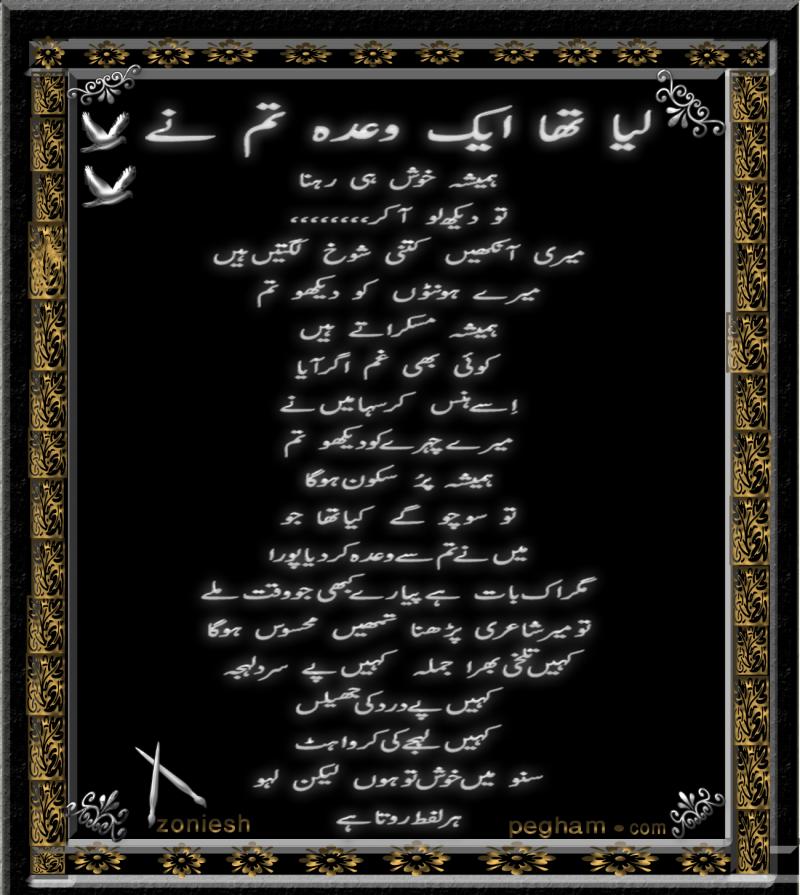 لیا تھا ایک وعدہ تم نے
ہمیشہ خوش ہی رہنا
تو دیکھ لو آ کر،،،،،،،،،
میری آنکھیں کتنی شوخ لگتیں ہیں
میرے ہونٹوں کو دیکھو تم
ہمیشہ مسکراتے ہیں
کوئی بھی غم اگر آیا
اِسے ہنس کر سہا میں نے
میرے چہرے کو دیکھو تم
ہمیشہ پرُ سکون ہوگا
تو سوچو گے کیا تھا جو
میں نے تم سے وعدہ کر دیا پورا
مگر اک بات ہے پیارے کبھی جو وقت ملے
تو میر شاعری پڑھنا تمھیں محسوس ہوگا
کہیں تلخی بھرا جملہ کہیں پے سرد لہجہ
کہیں پے درد کی جھیلں
کہیں لہجے کی کرواہٹ
سنو میں خوش تو ہوں لیکن لہو
ہر لفط روتا ہے
zoniesh
pegham.com